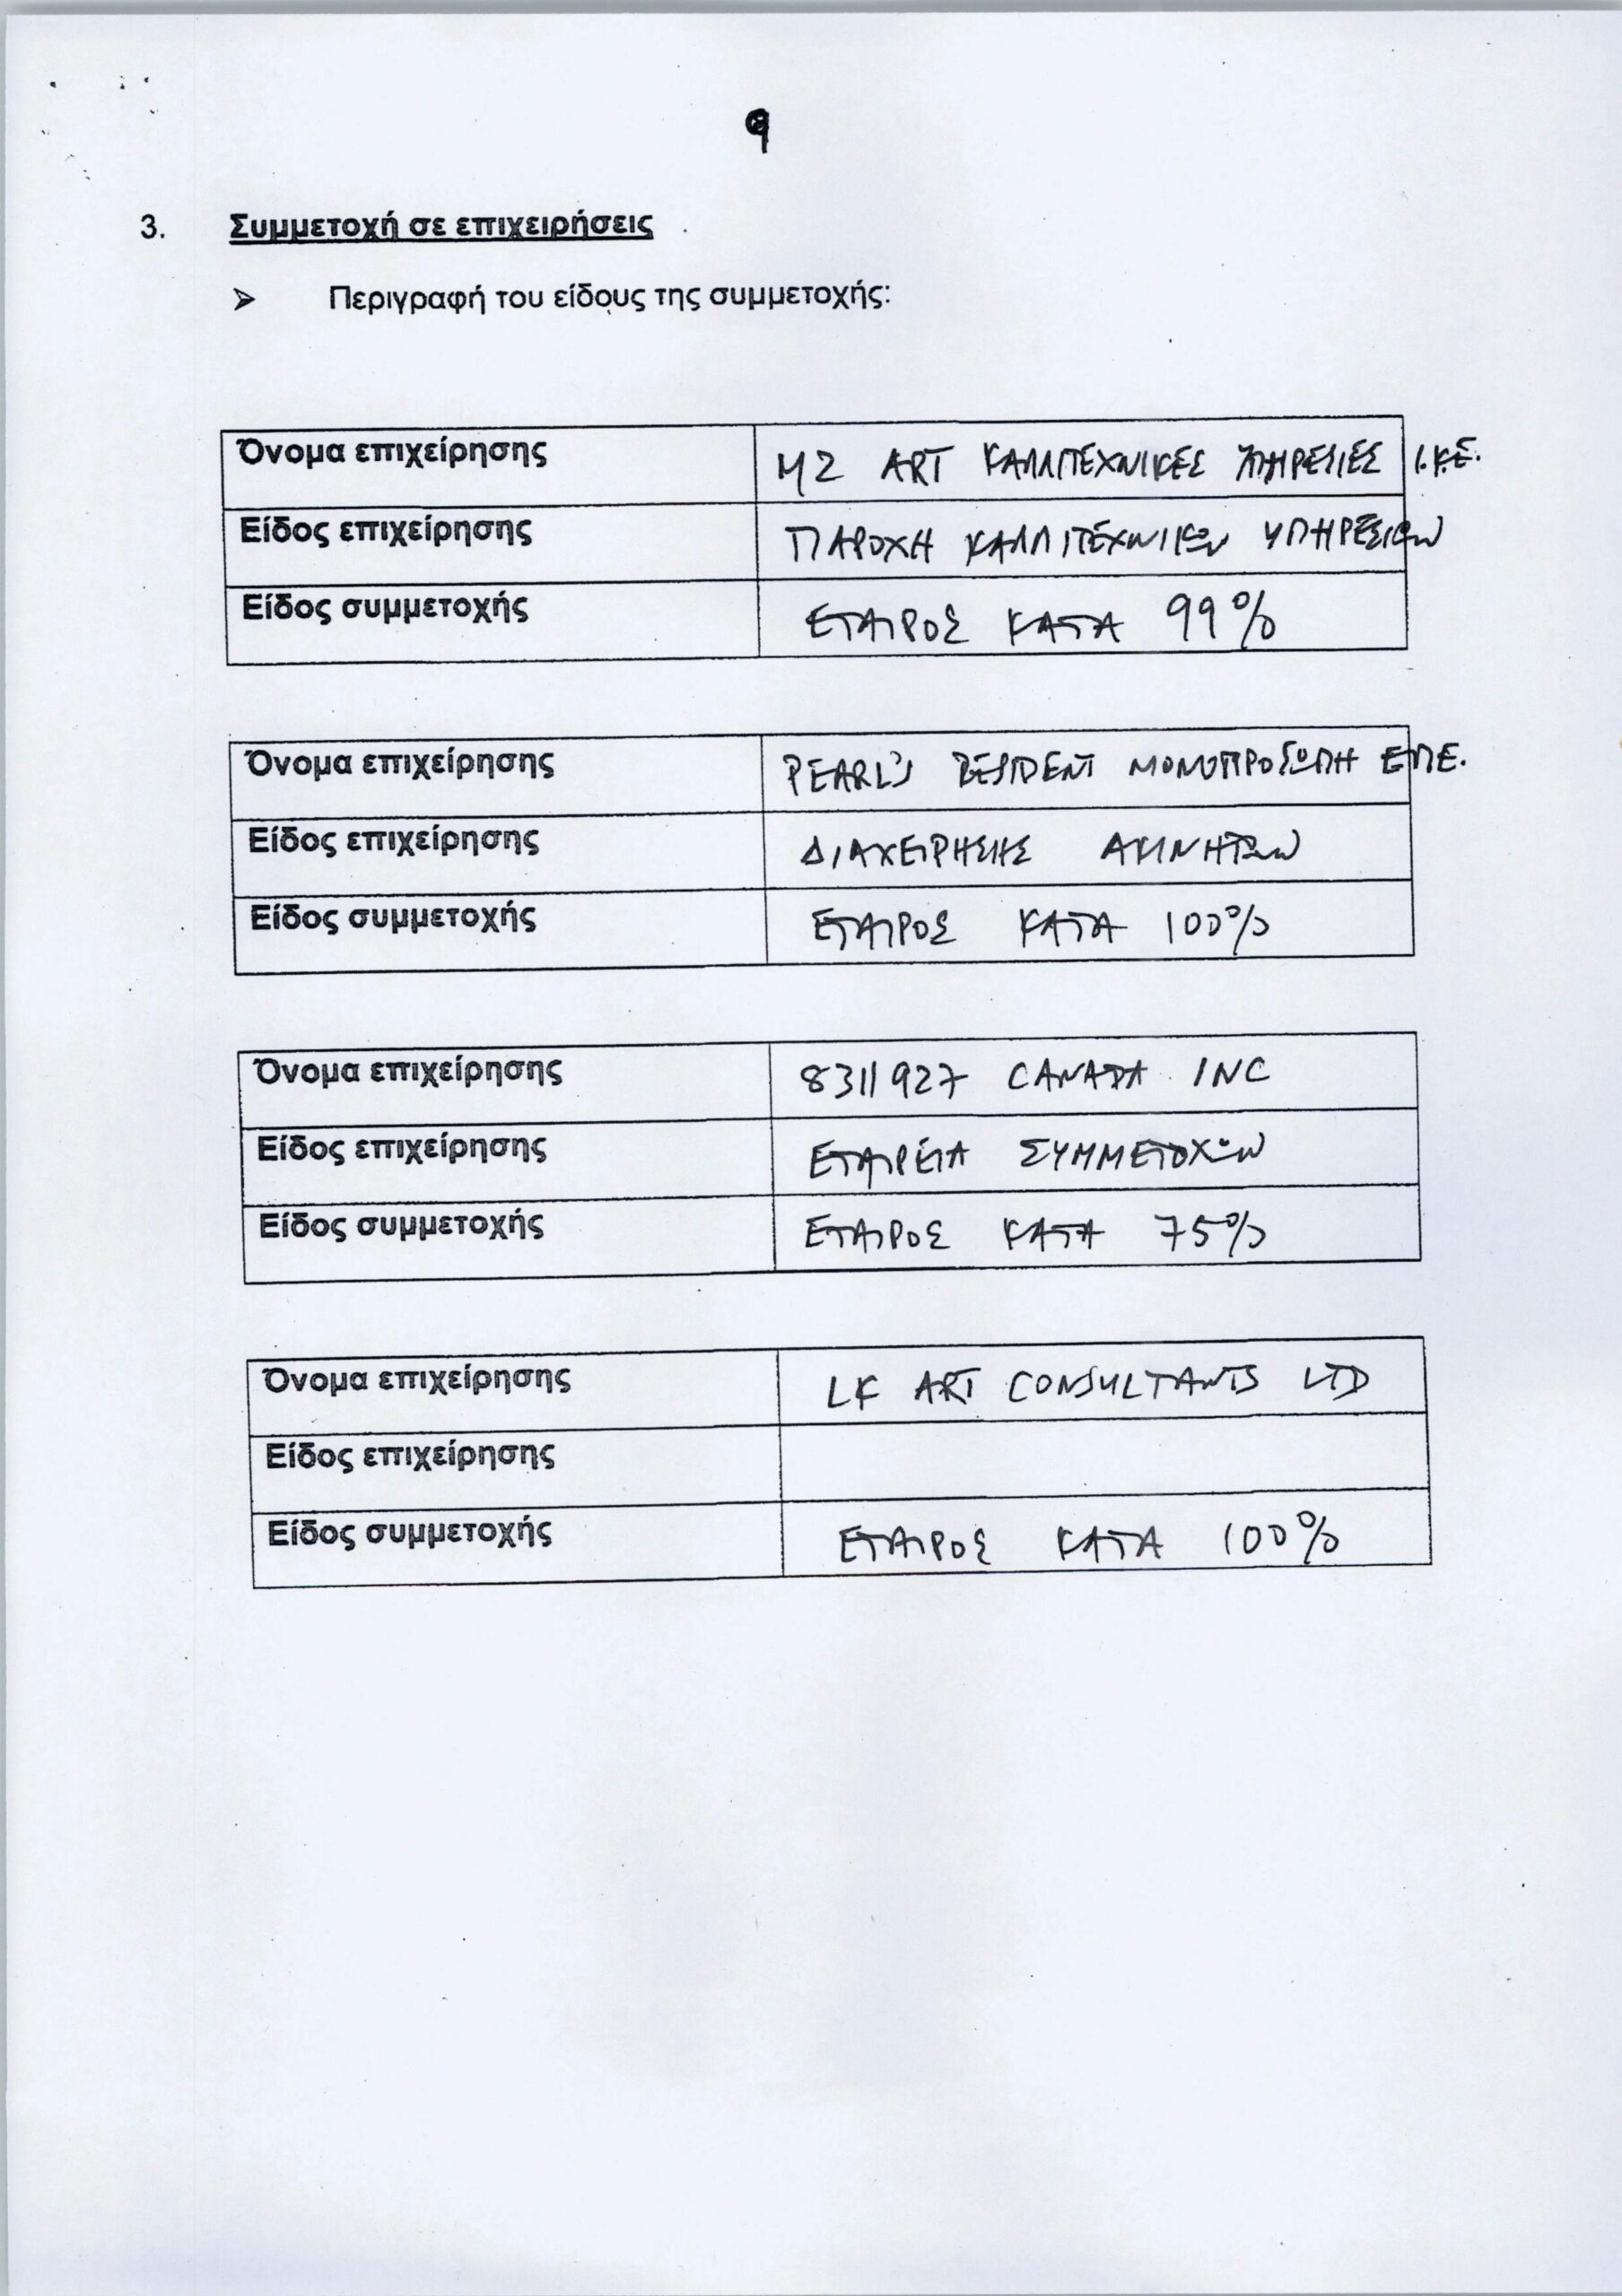 9
3. Συμμετοχή σε επιχειρήσεις
➢ Περιγραφή του είδους της συμμετοχής:
Όνομα επιχείρησης ΜΖ ART ΚΑΛΛΙΤΕΧΝΙΚΕΣ ΥΠΗΡΕΣΙΕΣ Ι.Κ.Ε.
Είδος επιχείρησης ΠΑΡΟΧΗ ΚΑΛΛΙΤΕΧΝΙΚΩΝ ΥΠΗΡΕΣΙΩΝ
Είδος συμμετοχής ΕΤΑΙΡΟΣ ΚΑΤΑ 99%
Όνομα επιχείρησης PEARL'S RESIDENT ΜΟΝΟΠΡΟΣΩΠΗ ΕΠΕ.
Είδος επιχείρησης ΔΙΑΧΕΙΡΗΣΗΣ ΑΚΙΝΗΤΩΝ
Είδος συμμετοχής ΕΤΑΙΡΟΣ ΚΑΤΑ 100%
Όνομα επιχείρησης 8311927 CANADA INC
Είδος επιχείρησης ΕΤΑΙΡΕΙΑ ΣΥΜΜΕΤΟΧΩΝ
Είδος συμμετοχής ΕΤΑΙΡΟΣ ΚΑΤΑ 75%
Όνομα επιχείρησης LK ART CONSULTANTS LTD
Είδος επιχείρησης
Είδος συμμετοχής ΕΤΑΙΡΟΣ ΚΑΤΑ 100%